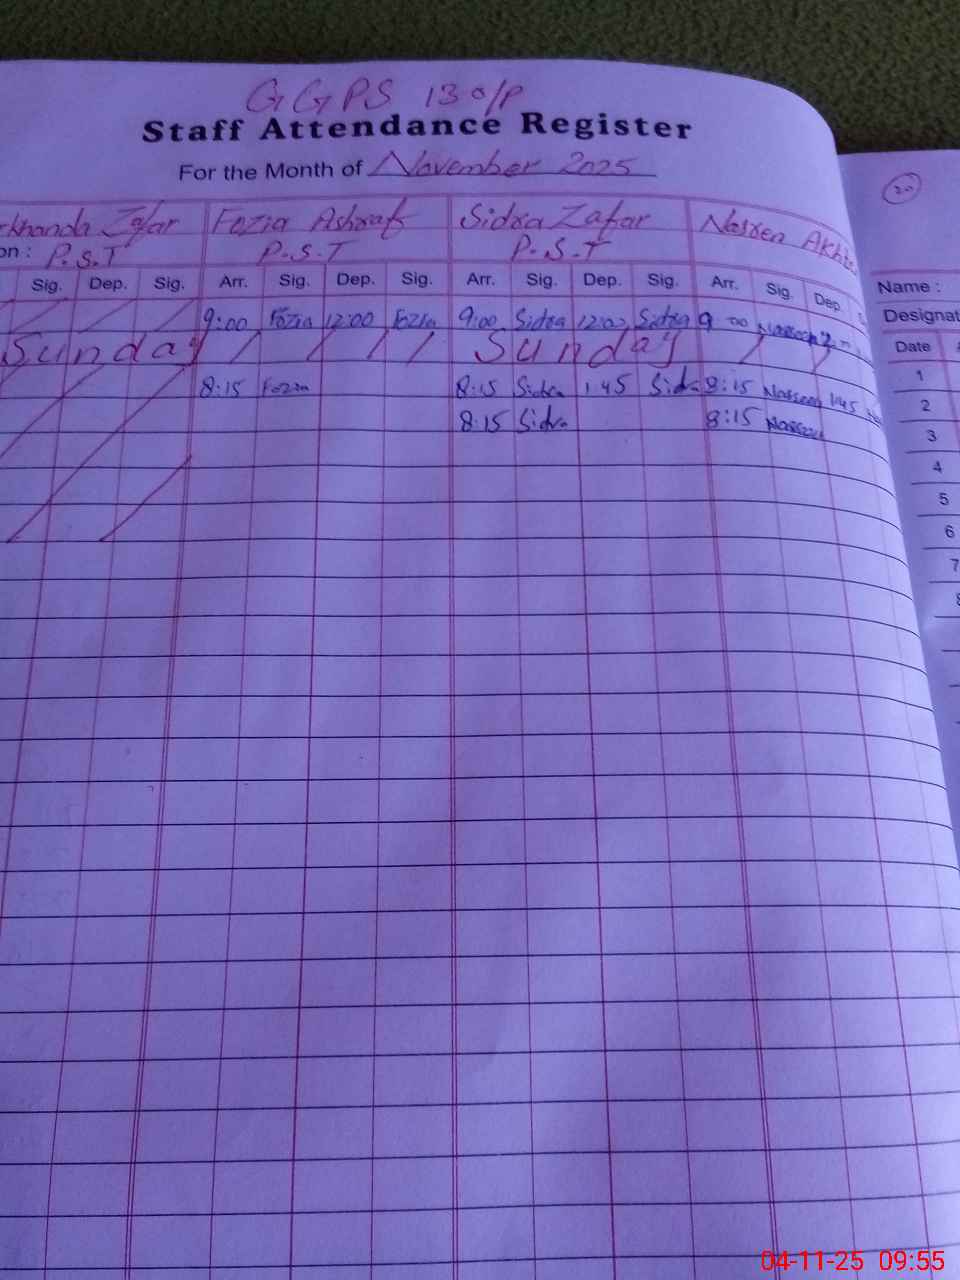 GGPS 130/P
Staff Attendance Register
For the Month of November 2025
Zafar Fozia Ashraf Sidra Zafar Nasren Akh
on : P.S.T P.S.T P.S.T
Sig. Dep. Sig. Arr. Sig. Dep. Sig. Arr. Sig. Dep. Sig. Arr. Sig. Dep.
9:00 Fozia 12:00 Fozia 9:00 Sidra 12:00 Sidra 9:00 Nasreen
Sunday Sunday
8:15 Fozia 8:15 Sidra 1:45 Sidra 8:15 Nasreen 1:45
8:15 Sidra 8:15 Nasreen
20
Name :
Designat
Date
1
2
3
4
5
6
7
8
04-11-25 09:55